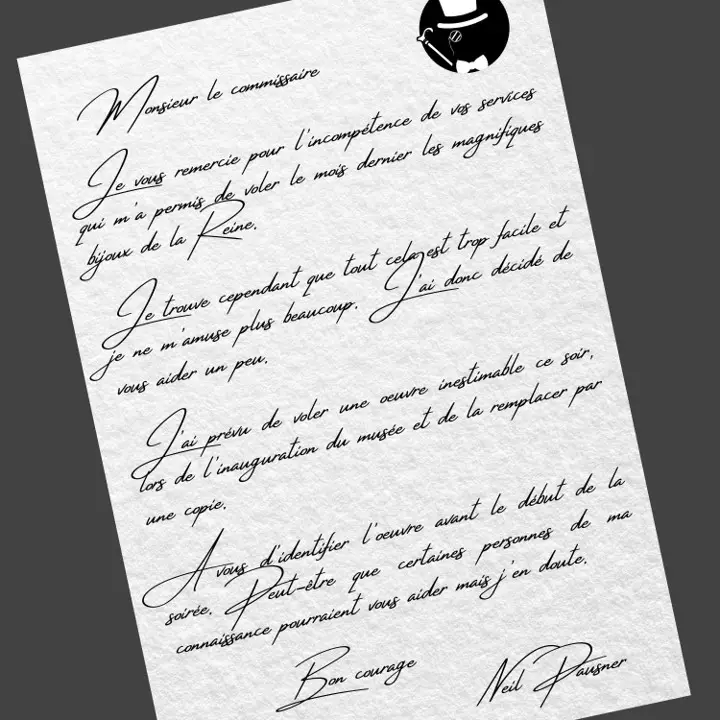 Monsieur le commissaire
Je vous remercie pour l'incompétence de vos services
qui m'a permis de voler le mois dernier les magnifiques
bijoux de la Reine.
Je trouve cependant que tout cela est trop facile et
je ne m'amuse plus beaucoup. J'ai donc décidé de
vous aider un peu.
J'ai prévu de voler une oeuvre inestimable ce soir,
lors de l'inauguration du musée et de la remplacer par
une copie.
A vous d'identifier l'oeuvre avant le début de la
soirée. Peut-être que certaines personnes de ma
connaissance pourraient vous aider mais j'en doute.
Bon courage Neil Pausner